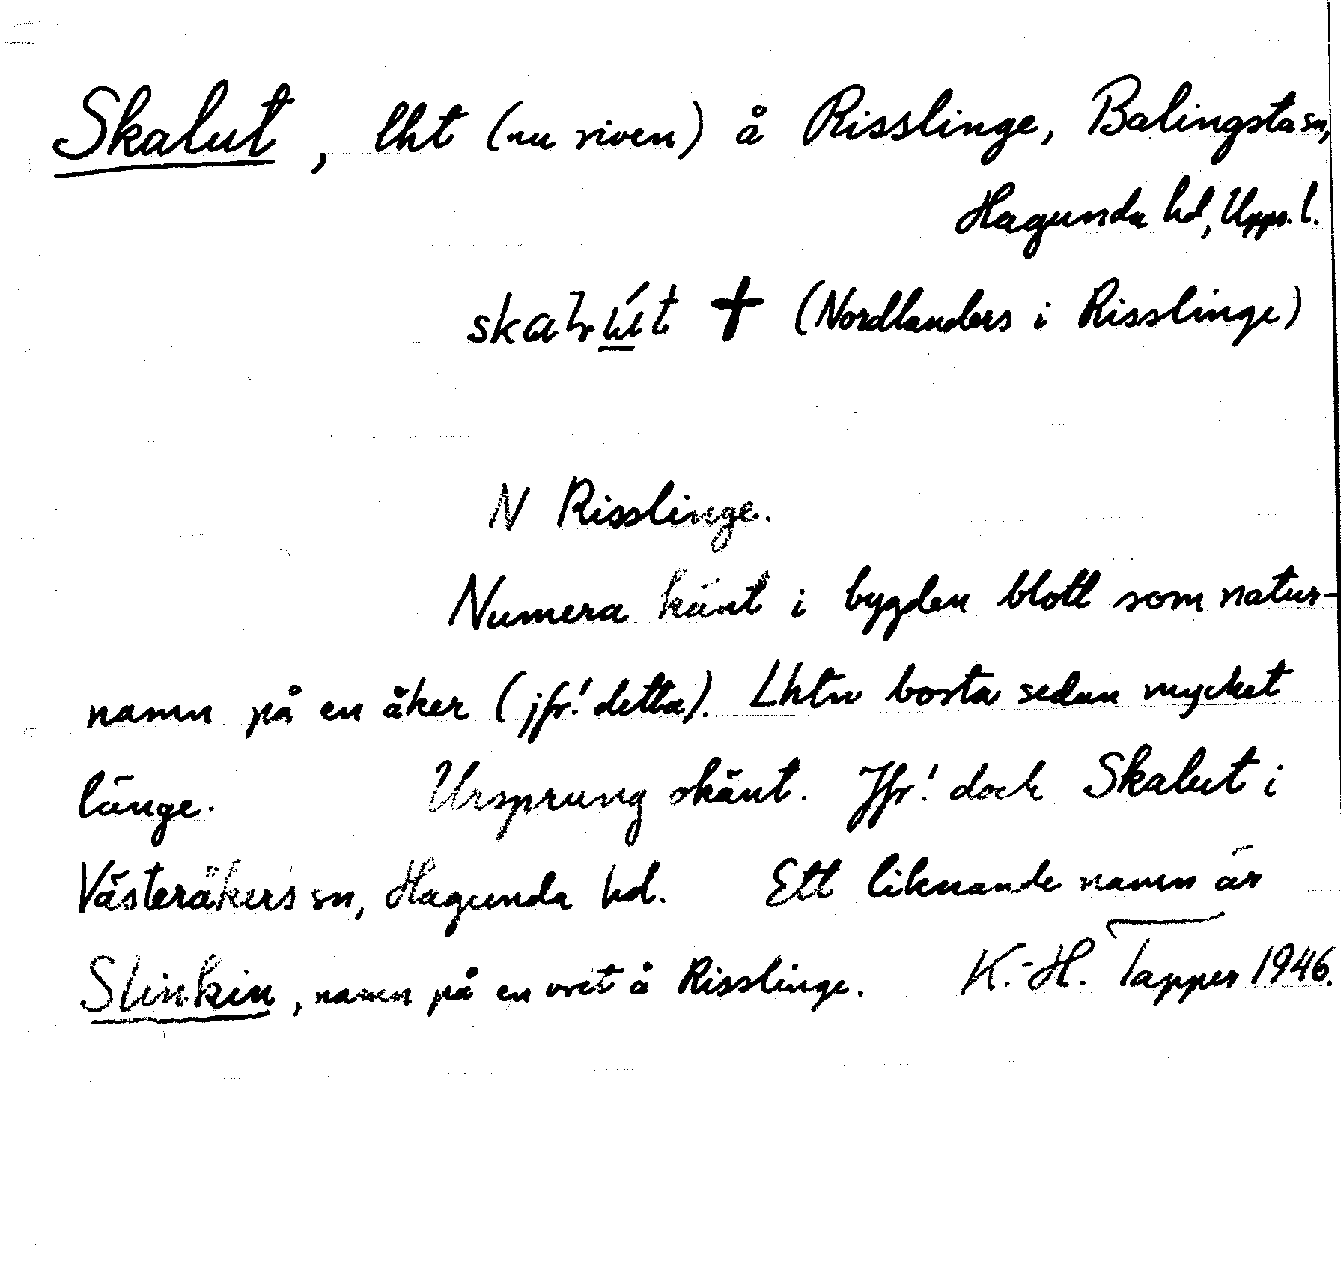 Skalut, lht (nu riven) å Risslinge, Balingsta sn,
Hagunda hd, Upps. l.
† (Nordlanders i Risslinge)
N Risslinge.
Numera känt i bygden blott som natur-
namn på en åker (jfr! detta). Lhtn borta sedan mycket
länge. Ursprung okänt. Jfr! dock Skalut i
Västeråkers sn, Hagunda hd. Ett liknande namn är
Slinkin, namn på en vret å Risslinge. K.-H. Tapper 1946.